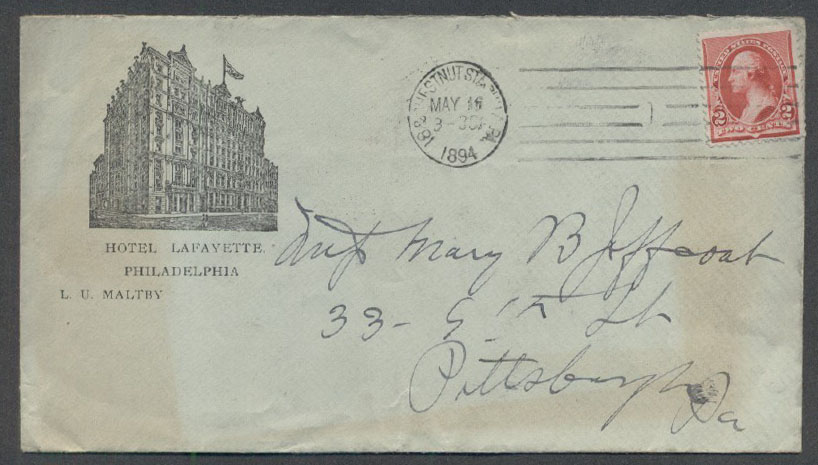 HOTEL LAFAYETTE.
PHILADELPHIA
L. U. MALTBY
CHESTNUT ST
MAY 16
3-30P
1894
UNITED STATES POSTAGE
2 2
TWO CENTS
Mary B Jeffcoat
33- 5th St
Pittsburgh
Pa